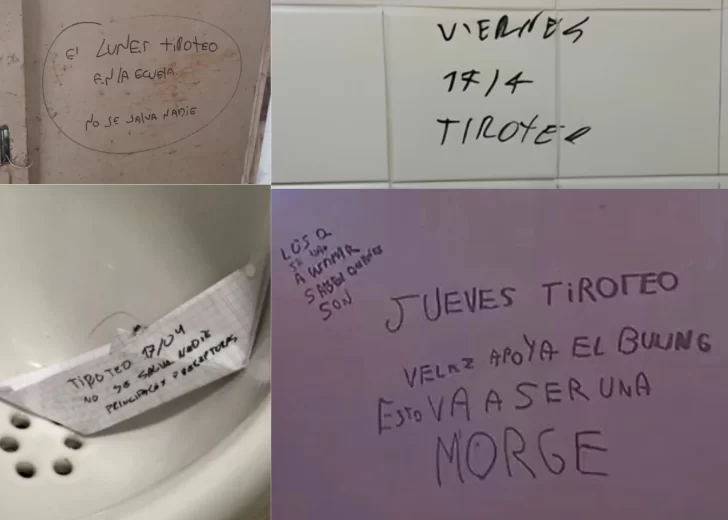 El LUNES TIROTEO
EN LA ESCUELA
NO SE SALVA NADIE
VIERNES
17/4
TIROTEO
TIROTEO 17/04
NO SE SALVA NADIE
PRINCIPAL Y PRECEPTORAS
LOS Q
SE VAN
A
SABEN QUIENES
SON
JUEVES TIROTEO
VELAZ APOYA EL BULING
ESTO VA A SER UNA
MORGE